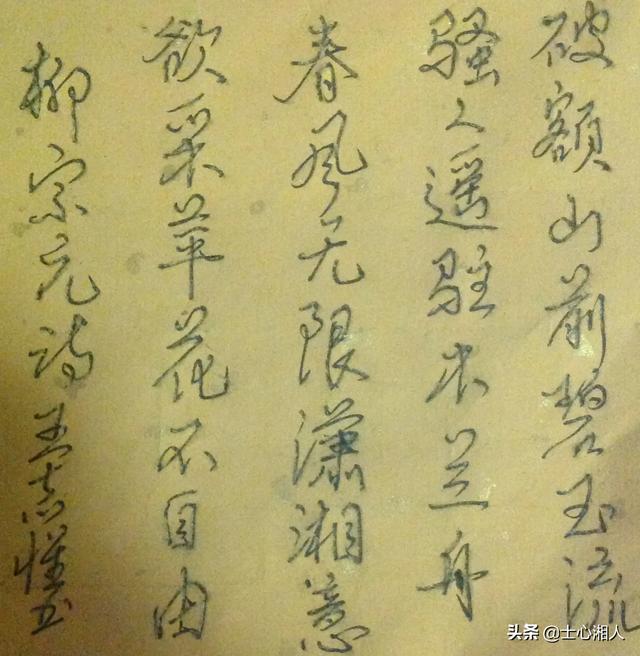 破额山前碧玉流
骚人遥驻木兰舟
春风无限潇湘意
欲采苹花不自由
柳宗元诗 志 书
头条 @士心湘人